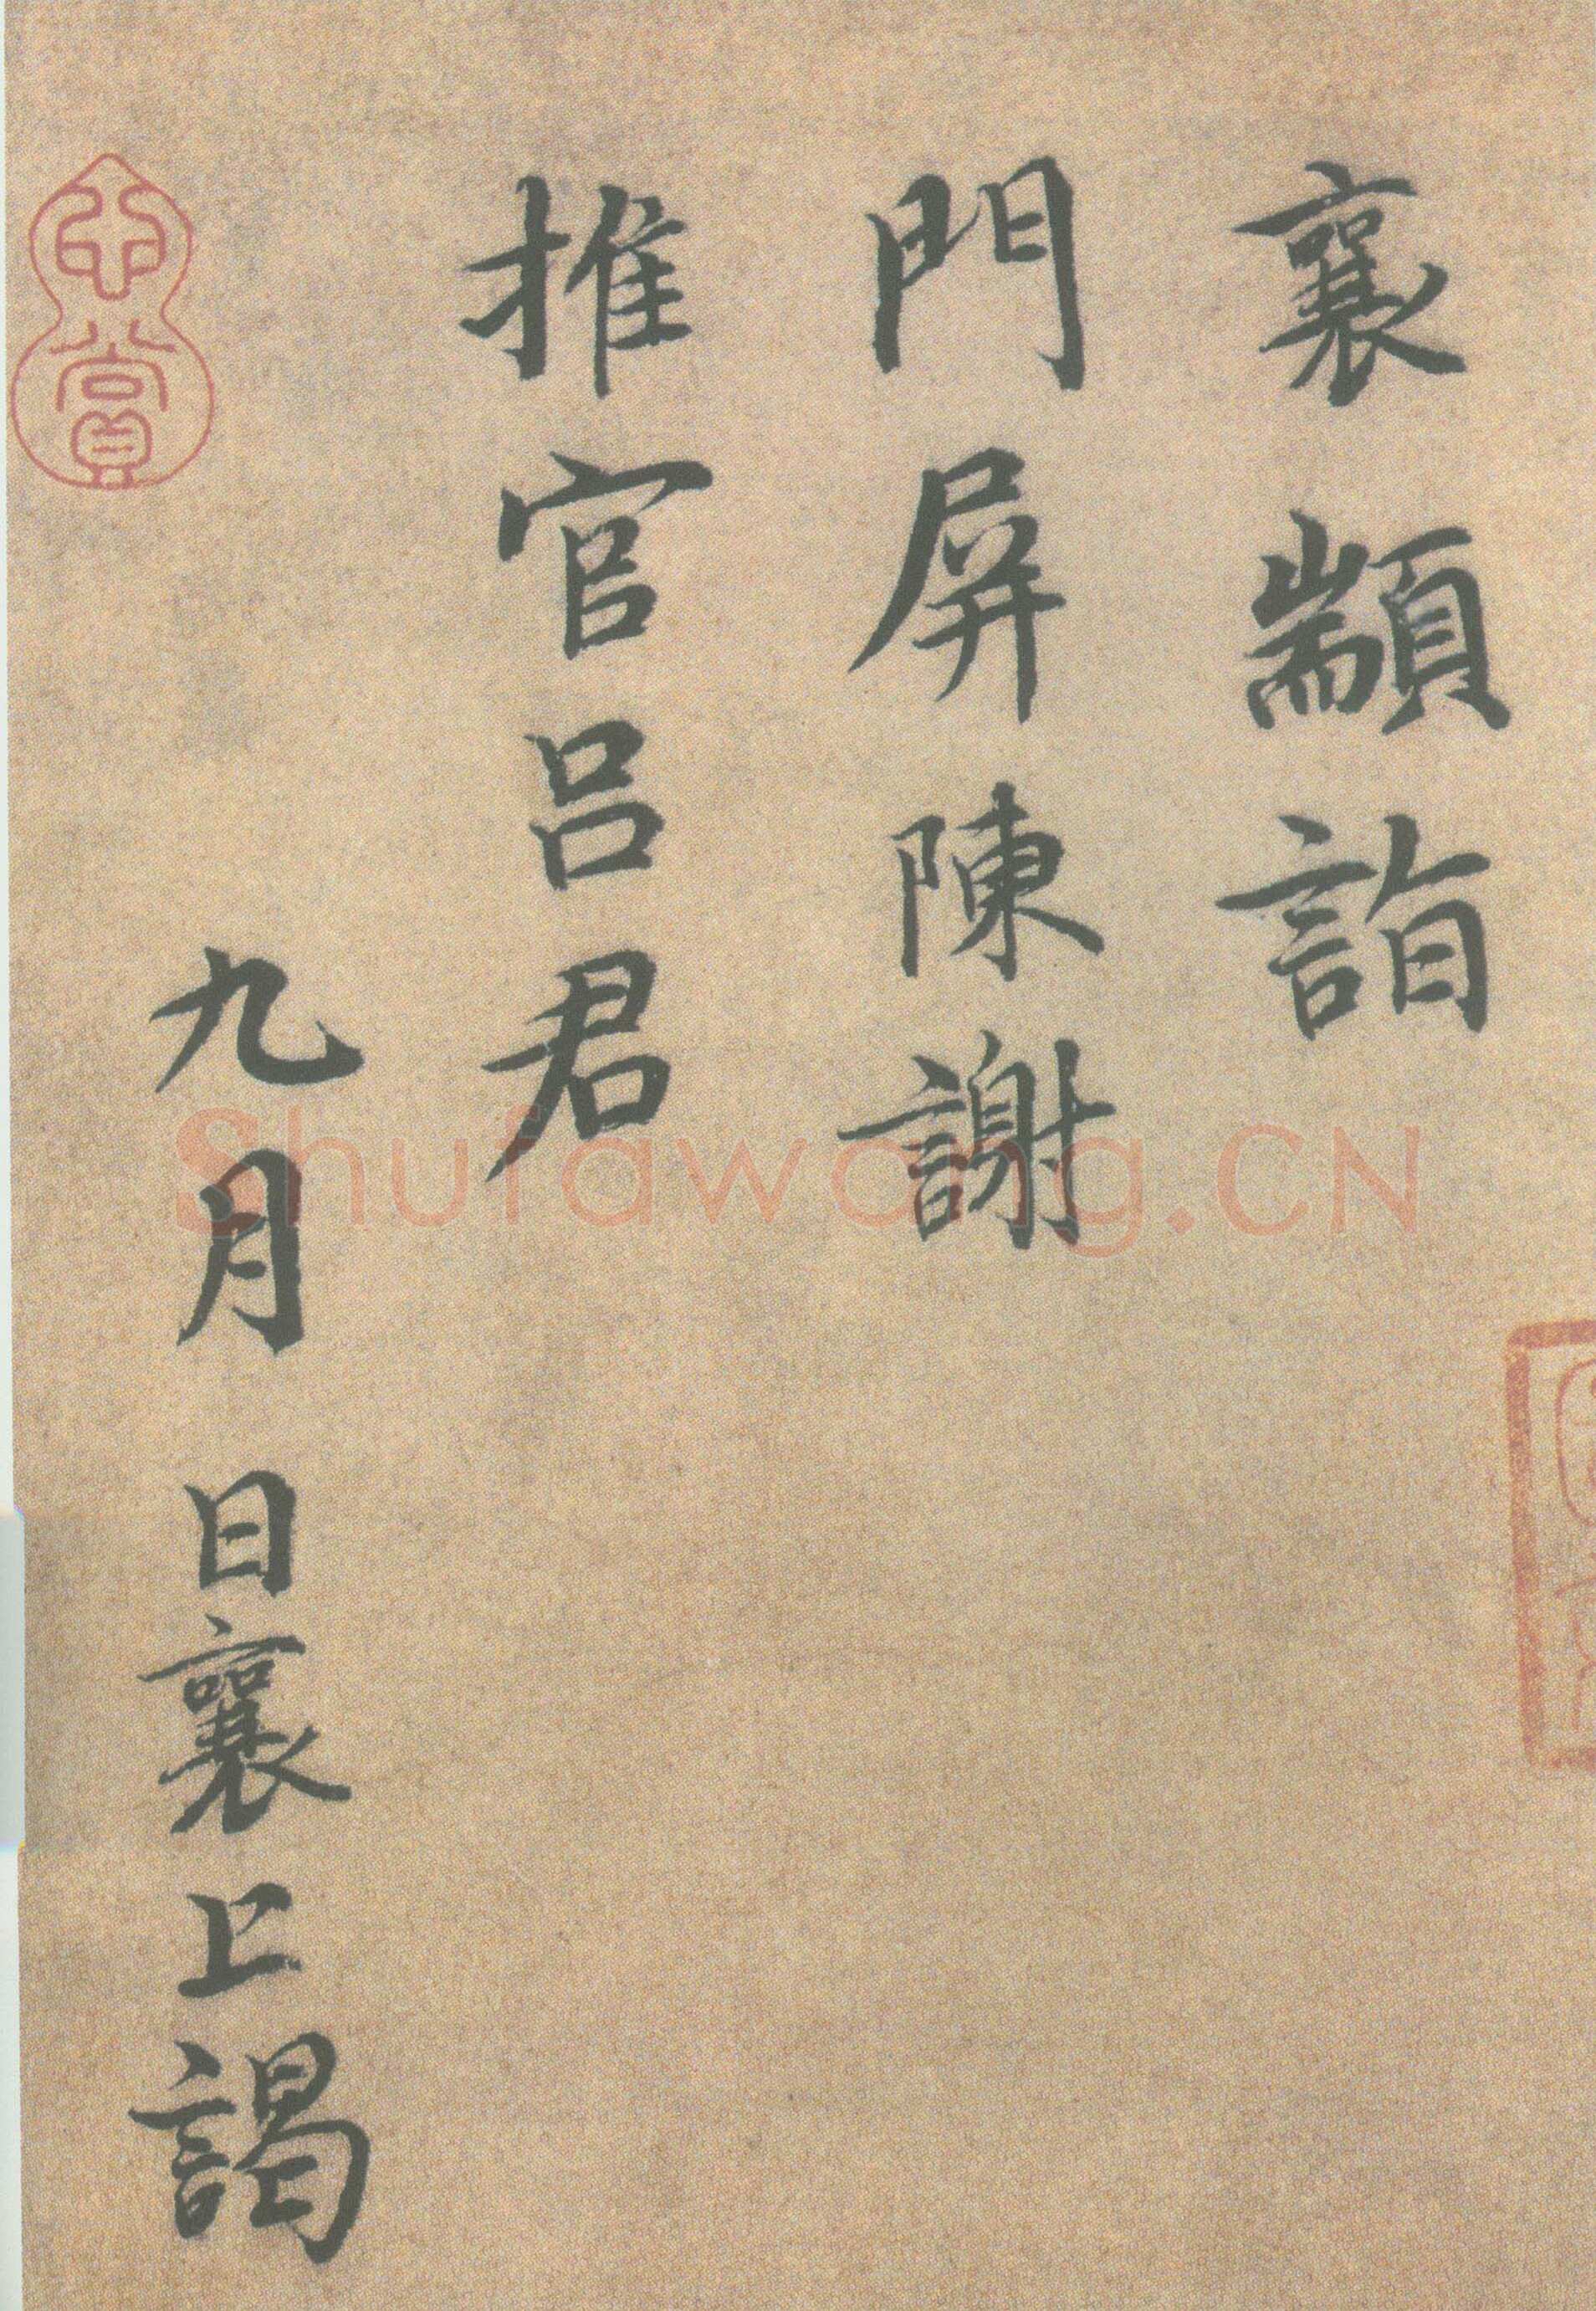 襄顓詣
門屏陳謝
推官呂君
九月日襄上謁
賞
Shufawang.CN